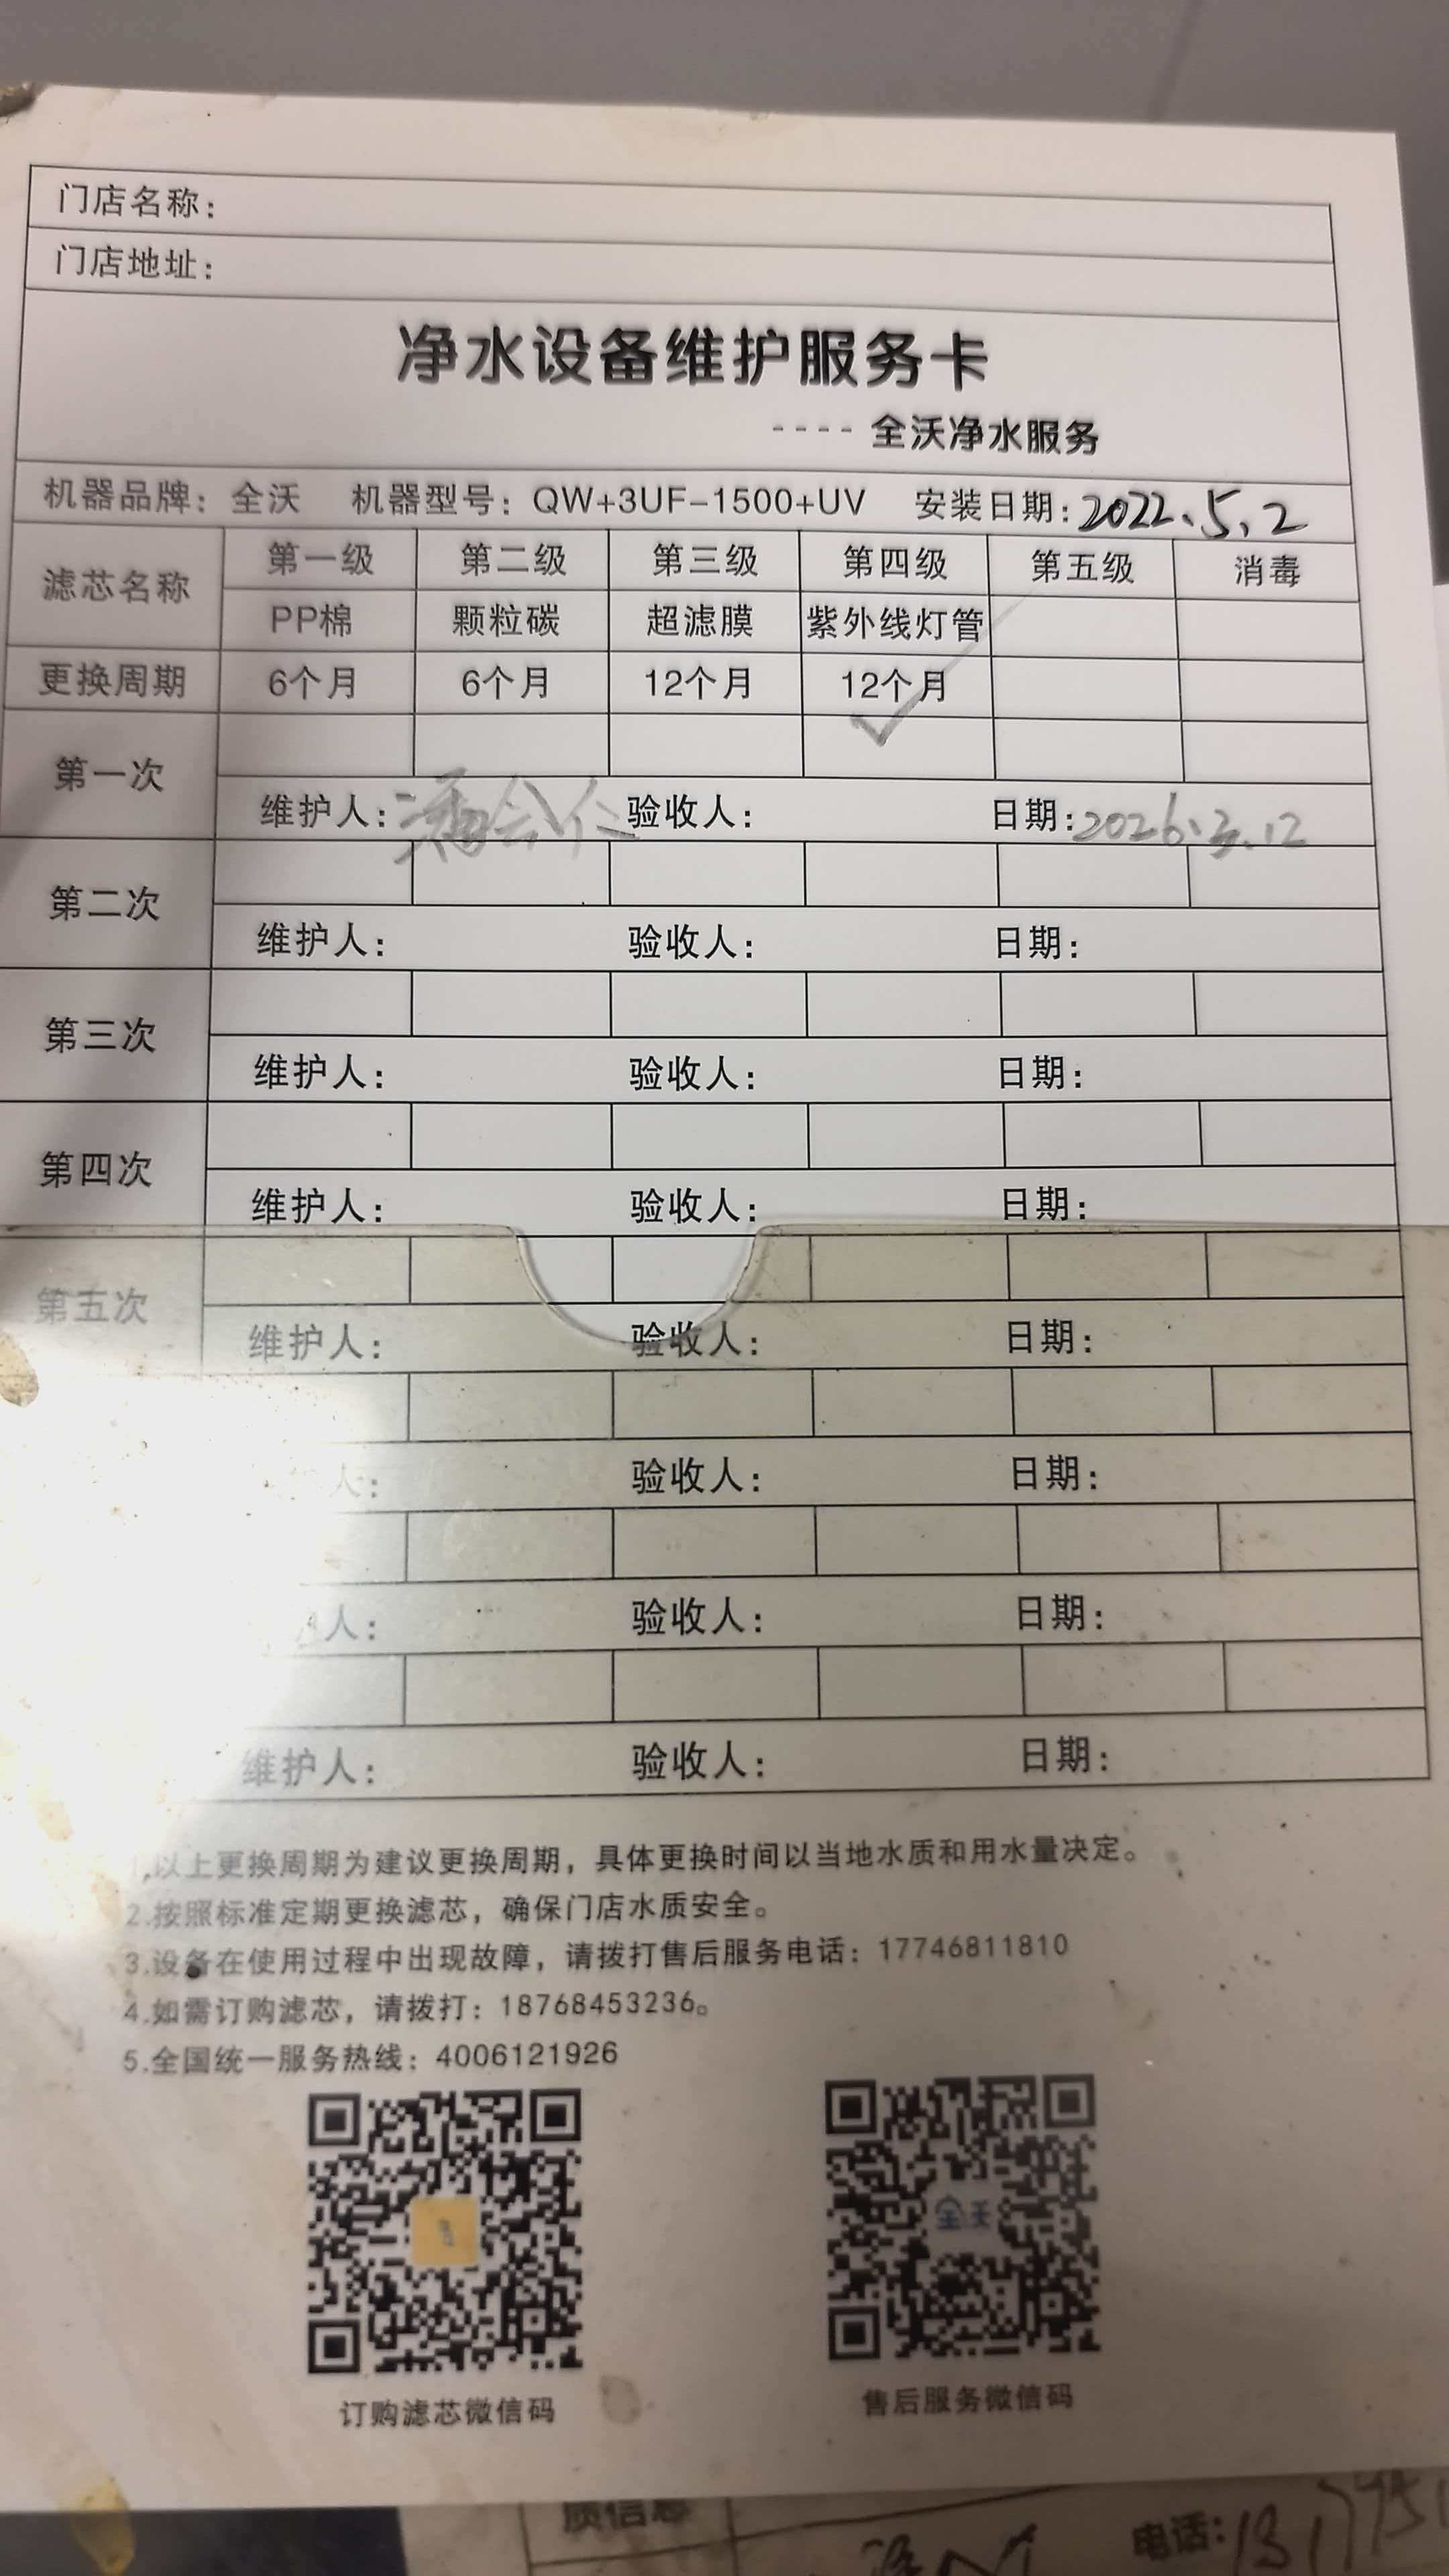 门店名称：
门店地址：
净水设备维护服务卡
---- 全沃净水服务
机器品牌：全沃 机器型号：QW+3UF-1500+UV 安装日期：2022.5.2
滤芯名称 第一级 第二级 第三级 第四级 第五级 消毒
PP棉 颗粒碳 超滤膜 紫外线灯管
更换周期 6个月 6个月 12个月 12个月
第一次
维护人： 验收人： 日期：2026.3.12
第二次
维护人： 验收人： 日期：
第三次
维护人： 验收人： 日期：
第四次
维护人： 验收人： 日期：
第五次
维护人： 验收人： 日期：
人： 验收人： 日期：
人： 验收人： 日期：
维护人： 验收人： 日期：
1.以上更换周期为建议更换周期，具体更换时间以当地水质和用水量决定。
2.按照标准定期更换滤芯，确保门店水质安全。
3.设备在使用过程中出现故障，请拨打售后服务电话：17746811810
4.如需订购滤芯，请拨打：18768453236。
5.全国统一服务热线：4006121926
全沃
订购滤芯微信码 售后服务微信码
质信息
电话：